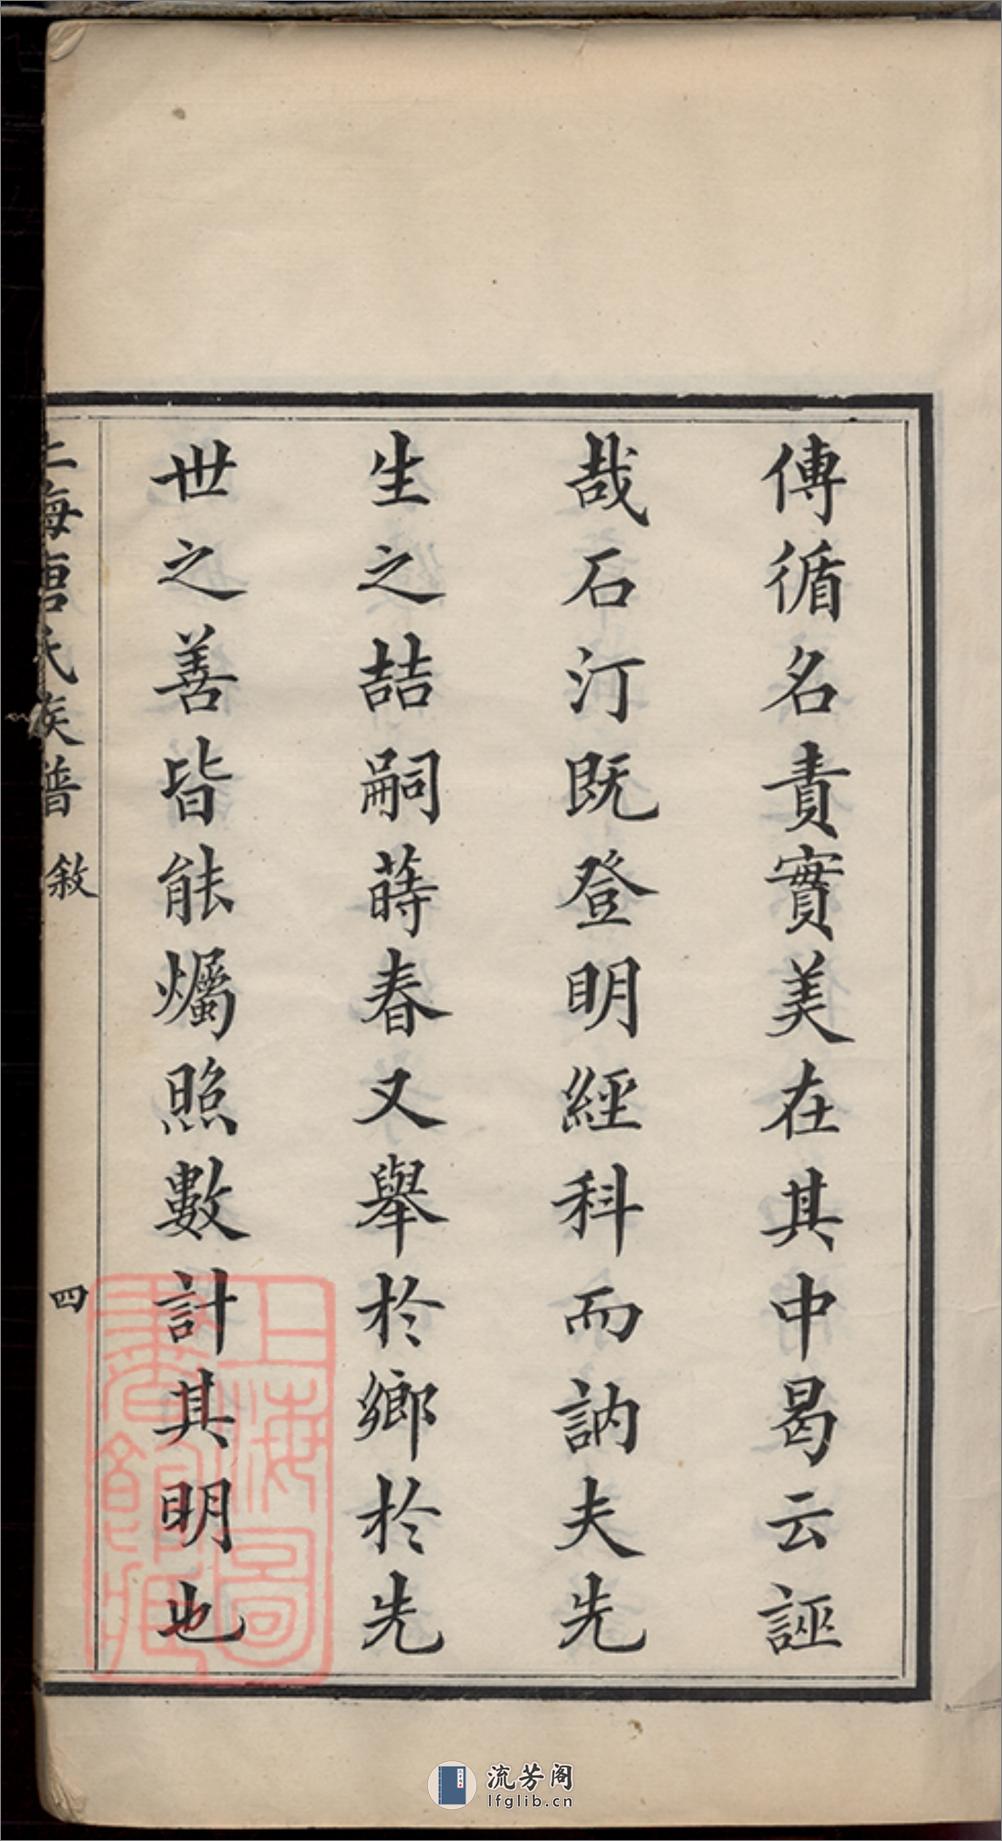 傳循名責實美在其中曷云誣
哉石汀既登明經科而訥夫先
生之喆嗣蒔春又舉於鄉於先
世之善皆能爥照數計其明也
上海唐氏族譜
敘
四
上海圖
書館藏
流芳阁
lfglib.cn